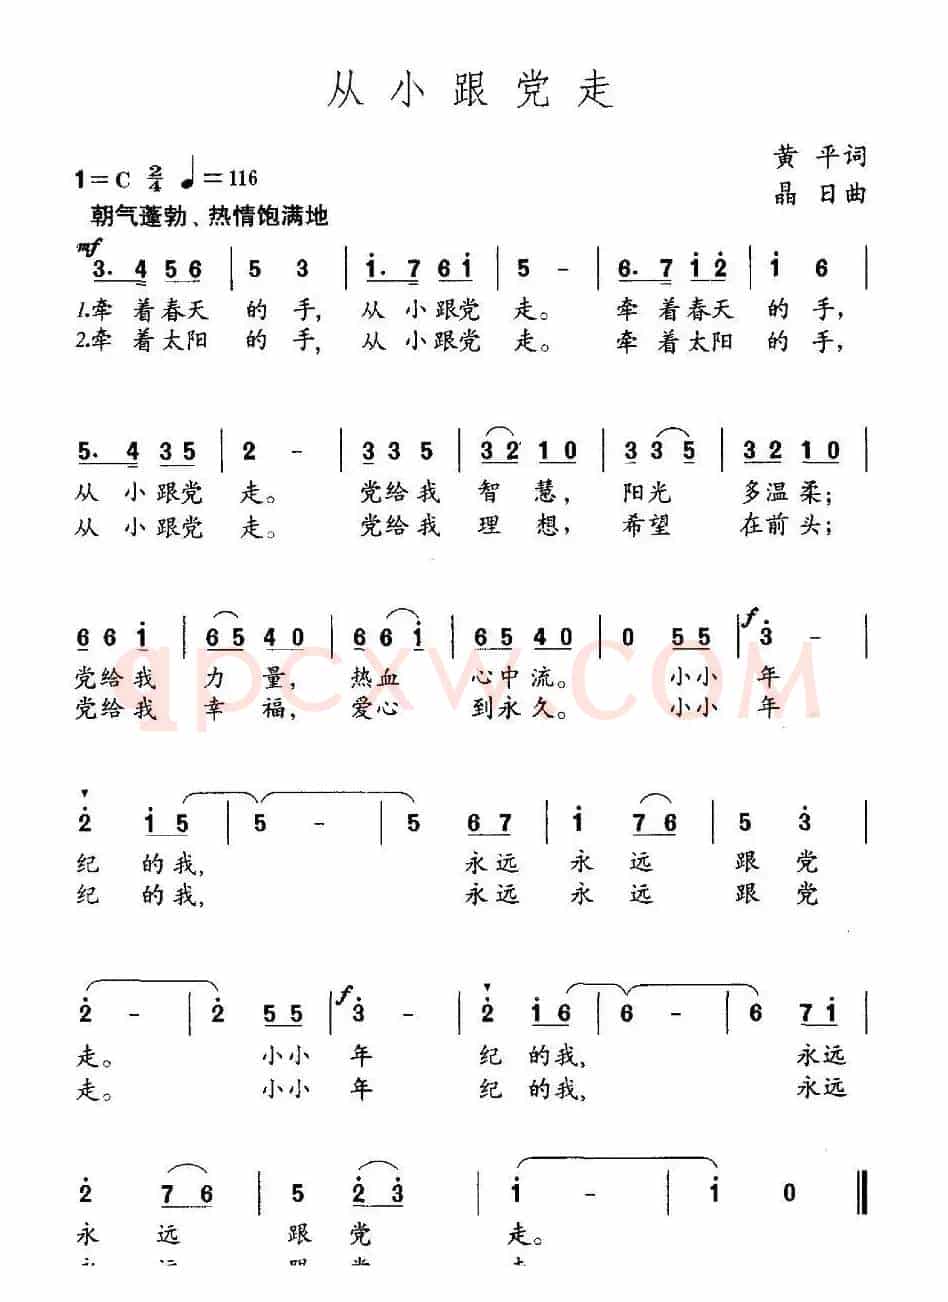 从小跟党走
黄 平词
1=C 2/4 ♩=116
晶 日曲
朝气蓬勃、热情饱满地
mf
3. 4 5 6 | 5 3 | i. 7 6 i | 5 - | 6. 7 i 2̇ | i 6 |
1.牵 着春天 的 手, 从 小跟党 走。 牵 着春天 的 手,
2.牵 着太阳 的 手, 从 小跟党 走。 牵 着太阳 的 手,
5. 4 3 5 | 2 - | 3 3 5 | 3 2 1 0 | 3 3 5 | 3 2 1 0 |
从 小跟党 走。 党给我 智 慧, 阳光 多温柔;
从 小跟党 走。 党给我 理 想, 希望 在前头;
6 6 i | 6 5 4 0 | 6 6 i | 6 5 4 0 | 0 5 5 | f 3̇ - |
党给我 力 量, 热血 心中流。 小小 年
党给我 幸 福, 爱心 到永久。 小小 年
qpcxw.com
2̇ i 5 | 5 - | 5 6 7 | i 7 6 | 5 3̇ |
纪 的我, 永远 永 远 跟 党
纪 的我, 永远 永 远 跟 党
2̇ - | 2̇ 5 5 | f 3̇ - | 2̇ i 6 | 6 - | 6 7 i |
走。 小小 年 纪 的我, 永远
走。 小小 年 纪 的我, 永远
2̇ 7 6 | 5 2̇ 3̇ | i - | i 0 ‖
永 远 跟 党 走。
永 远 跟 党 走